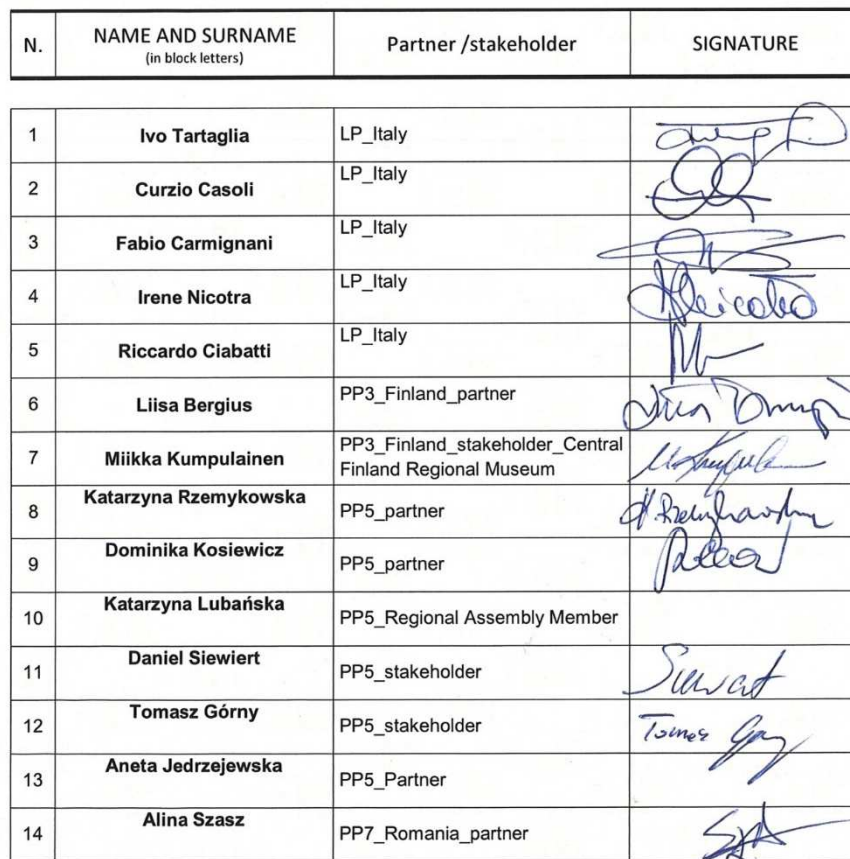 N. NAME AND SURNAME Partner /stakeholder SIGNATURE
(in block letters)
1 Ivo Tartaglia LP_Italy
2 Curzio Casoli LP_Italy
3 Fabio Carmignani LP_Italy
4 Irene Nicotra LP_Italy
5 Riccardo Ciabatti LP_Italy
6 Liisa Bergius PP3_Finland_partner
7 Miikka Kumpulainen PP3_Finland_stakeholder_Central
Finland Regional Museum
8 Katarzyna Rzemykowska PP5_partner
9 Dominika Kosiewicz PP5_partner
10 Katarzyna Lubańska PP5_Regional Assembly Member
11 Daniel Siewiert PP5_stakeholder
12 Tomasz Górny PP5_stakeholder
13 Aneta Jedrzejewska PP5_Partner
14 Alina Szasz PP7_Romania_partner